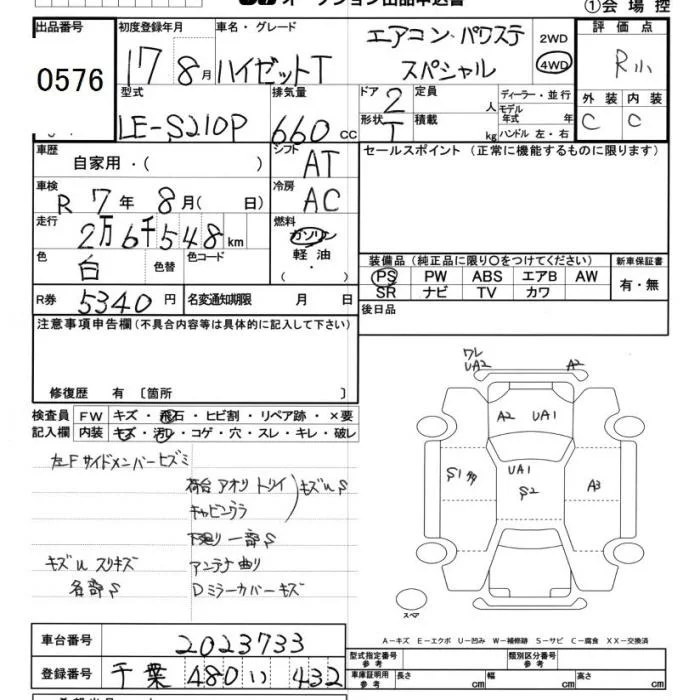 オークション出品申込書
①会場控
出品番号
0576
初度登録年月
17 8月
車名・グレード
ハイゼットT エアコン・パワステ スペシャル
2WD
4WD
評価点
R小
外装 内装
C C
型式
LE-S210P
排気量
660 cc
ドア 2
形状 T
定員 人
積載 kg
ディーラー・並行
モデル年式 年
ハンドル 左・右
車歴
自家用・( )
シフト
AT
セールスポイント (正常に機能するものに限ります)
車検
R 7年 8月( 日)
冷房
AC
走行
2万6千548km
燃料
ガソリン
軽油
( ・ )
色
白
色替
色コード
装備品 (純正品に限り○をつけてください)
新車保証書
PS PW ABS エアB AW
SR ナビ TV カワ
有・無
R券 5340円
名変通知期限 月 日
後日品
注意事項申告欄 (不具合内容等は具体的に記入して下さい)
修復歴 有 〔箇所 〕
検査員記入欄
FW キズ・飛石・ヒビ割・リペア跡・×要
内装 キズ・汚レ・コゲ・穴・スレ・キレ・破レ
左Fサイドメンバーヒズミ
荷台 アオリ トリイ キズUS
キャビンウラ
下廻り 一部S
キズU スリキズ
アンテナ曲り
各部S
Dミラーカバーキズ
ワレ
UA2 A2
A2 UA1
S1多 UA1
S2 A3
スペア
A-キズ E-エクボ U-凹み W-補修跡 S-サビ C-腐食 XX-交換済
車台番号
2023733
登録番号
千葉 480 い 432
型式指定番号 参考
類別区分番号 参考
車庫証明用 参考
長さ cm 幅 cm 高さ cm